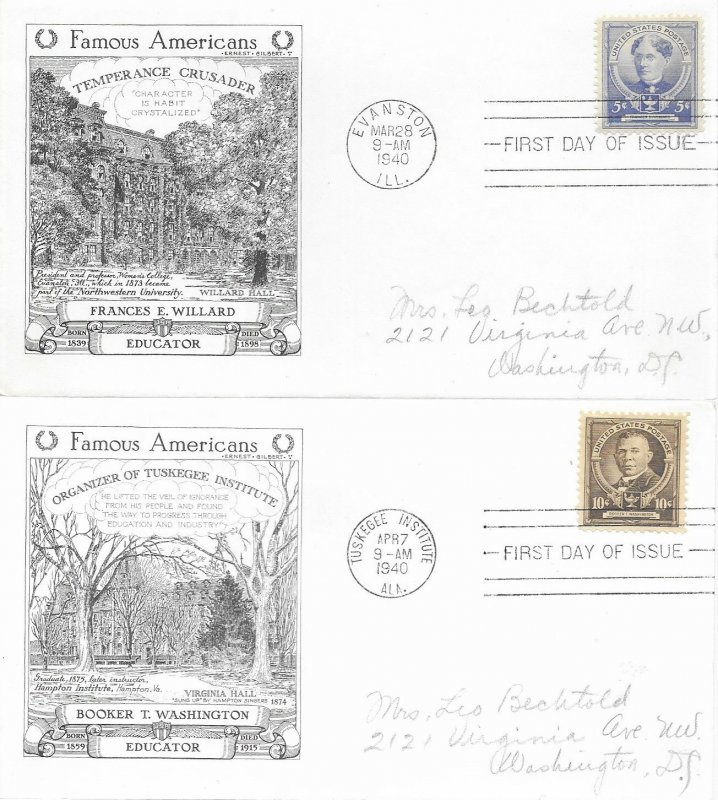 Famous Americans
·ERNEST·GILBERT·
TEMPERANCE CRUSADER
"CHARACTER
IS HABIT
CRYSTALIZED"
President and professor, Women's College,
Evanston, Ill., which in 1873 became
part of the Northwestern University.
WILLARD HALL
FRANCES E. WILLARD
BORN 1839
EDUCATOR
DIED 1898
EVANSTON
MAR28
9-AM
1940
ILL.
UNITED STATES POSTAGE
5¢ 5¢
FIRST DAY OF ISSUE
Mrs. Leo Bechtold
2121 Virginia Ave. NW.,
Washington, D.C.
Famous Americans
·ERNEST·GILBERT·
ORGANIZER OF TUSKEGEE INSTITUTE
HE LIFTED THE VEIL OF IGNORANCE
FROM HIS PEOPLE AND FOUND
THE WAY TO PROGRESS THROUGH
EDUCATION AND INDUSTRY"
Graduate, 1875, later instructor,
Hampton Institute, Hampton, Va.
VIRGINIA HALL
"SUNG UP" BY HAMPTON SINGERS 1874
BOOKER T. WASHINGTON
BORN 1859
EDUCATOR
DIED 1915
TUSKEGEE INSTITUTE
APR7
9-AM
1940
ALA.
UNITED STATES POSTAGE
10¢ 10¢
BOOKER T. WASHINGTON
FIRST DAY OF ISSUE
Mrs. Leo Bechtold
2121 Virginia Ave. NW.
Washington, D.C.